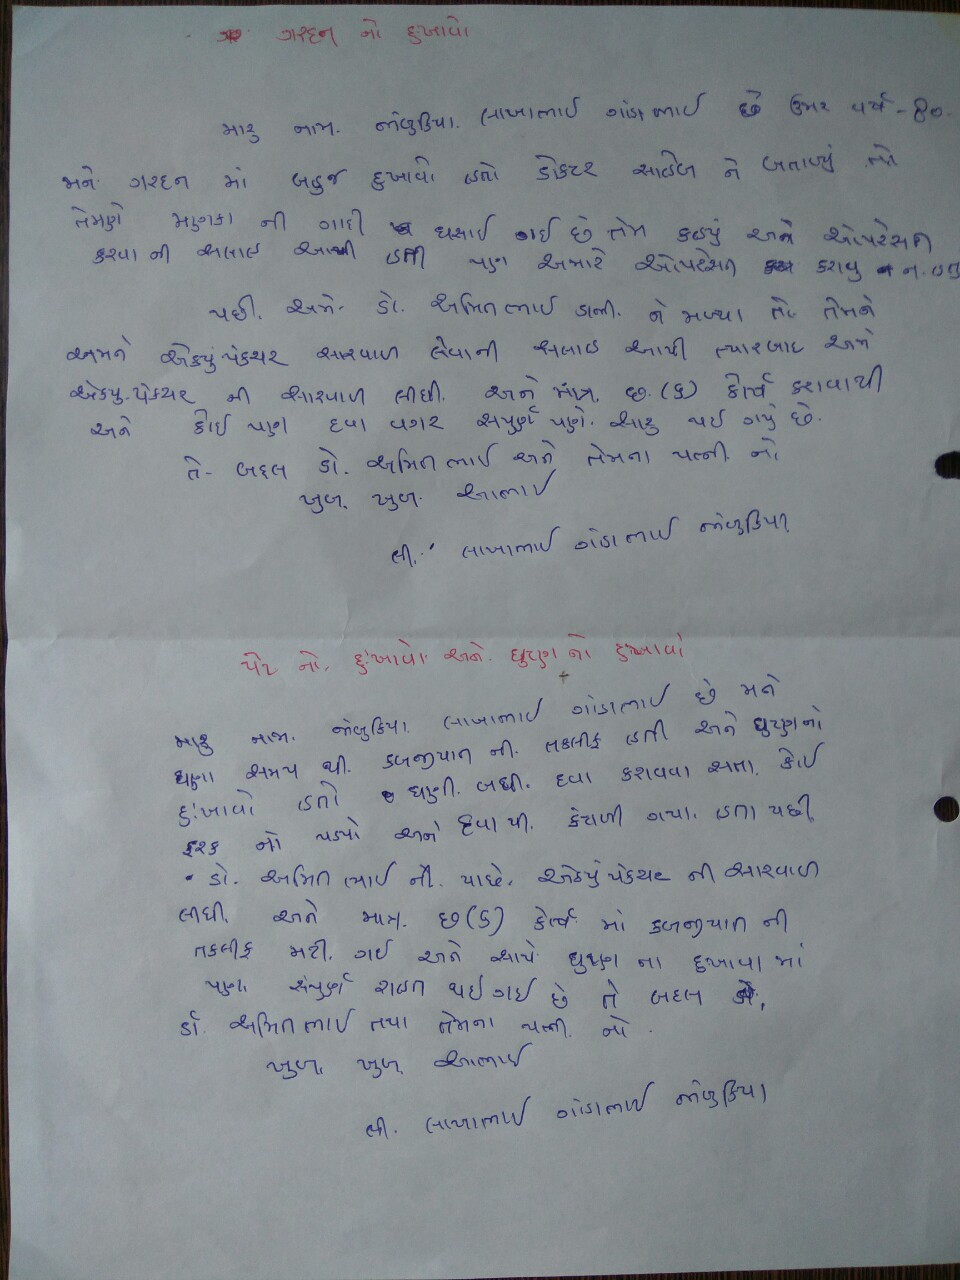 ગરદન નો દુખાવો
મારૂ નામ. જાંબુકિયા. લાખાભાઈ ગાંડાભાઈ છે ઉંમર વર્ષ - 80.
મને ગરદન માં બહુજ દુખાવો હતો ડોકટર સાહેબ ને બતાવ્યું તો
તેમણે મણકા ની ગાદી ઘસાઈ ગઈ છે તેમ કહ્યું અને ઓપરેસન
કરવા ની સલાહ આપી હતી પણ અમારે ઓપરેસન કરાવુ ન. હતુ
પછી. અમે. ડો. અમિતભાઈ ને મળ્યા તો તેમને
અમને એક્યુપંકચર સારવાળ લેવાની સલાહ આપી ત્યારબાદ અમે
એક્યુ.પંકચર ની સારવાળ લીધી. અને માત્ર. છ. (૬) કોર્ષ કરાવાથી
અને કોઈ પણ દવા વગર સંપુર્ણ પણે. સારુ થઈ ગયુ છે.
તે. બદલ ડો. અમિતભાઈ અને તેમના પત્ની નો
ખુબ, ખુબ. આભાઈ
લી. લાખાભાઈ ગાંડાભાઈ જાંબુકિયા
પેટ નો. દુ:ખાવો અને. ઘુંટણ નો દુખાવો
મારૂ નામ. જાંબુકિયા. લાખાભાઈ ગાંડાભાઈ છે મને
ઘણા સમય થી. કબજીયાત ની. તકલીફ હતી અને ઘુંટણનો
દુ:ખાવો હતો ઘણી. બધી. દવા કરાવવા છતા. કોઈ
ફરક નો પડ્યો અને દવા થી. કંટાળી ગયા. હતા પછી
. ડો. અમિતભાઈ ની. પાછે. એક્યુપંકચર ની સારવાળ
લીધી. અને માત્ર. છ (૬) કોર્ષ માં કબજીયાત ની
તકલીફ મટી. ગઈ અને સાથે ઘુંટણ ના દુખાવા માં
પણ. સંપુર્ણ રાહત થઈ ગઈ છે તે બદલ
ડૉ. અમિતભાઈ તથા તેમના પત્ની નો.
ખુબ, ખુબ આભાઈ
લી. લાખાભાઈ ગાંડાભાઈ જાંબુકિયા